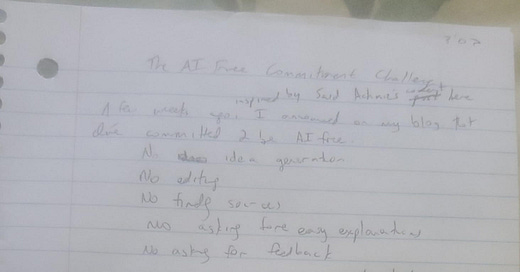 7:07
The AI Free Commitment Challenge
inspired by Said Achmiz's here
A few weeks ago, I announced on my blog that
I've committed 2 be AI free.
No idea generation
No editing
No finding sources
No asking for easy explanations
No asking for feedback